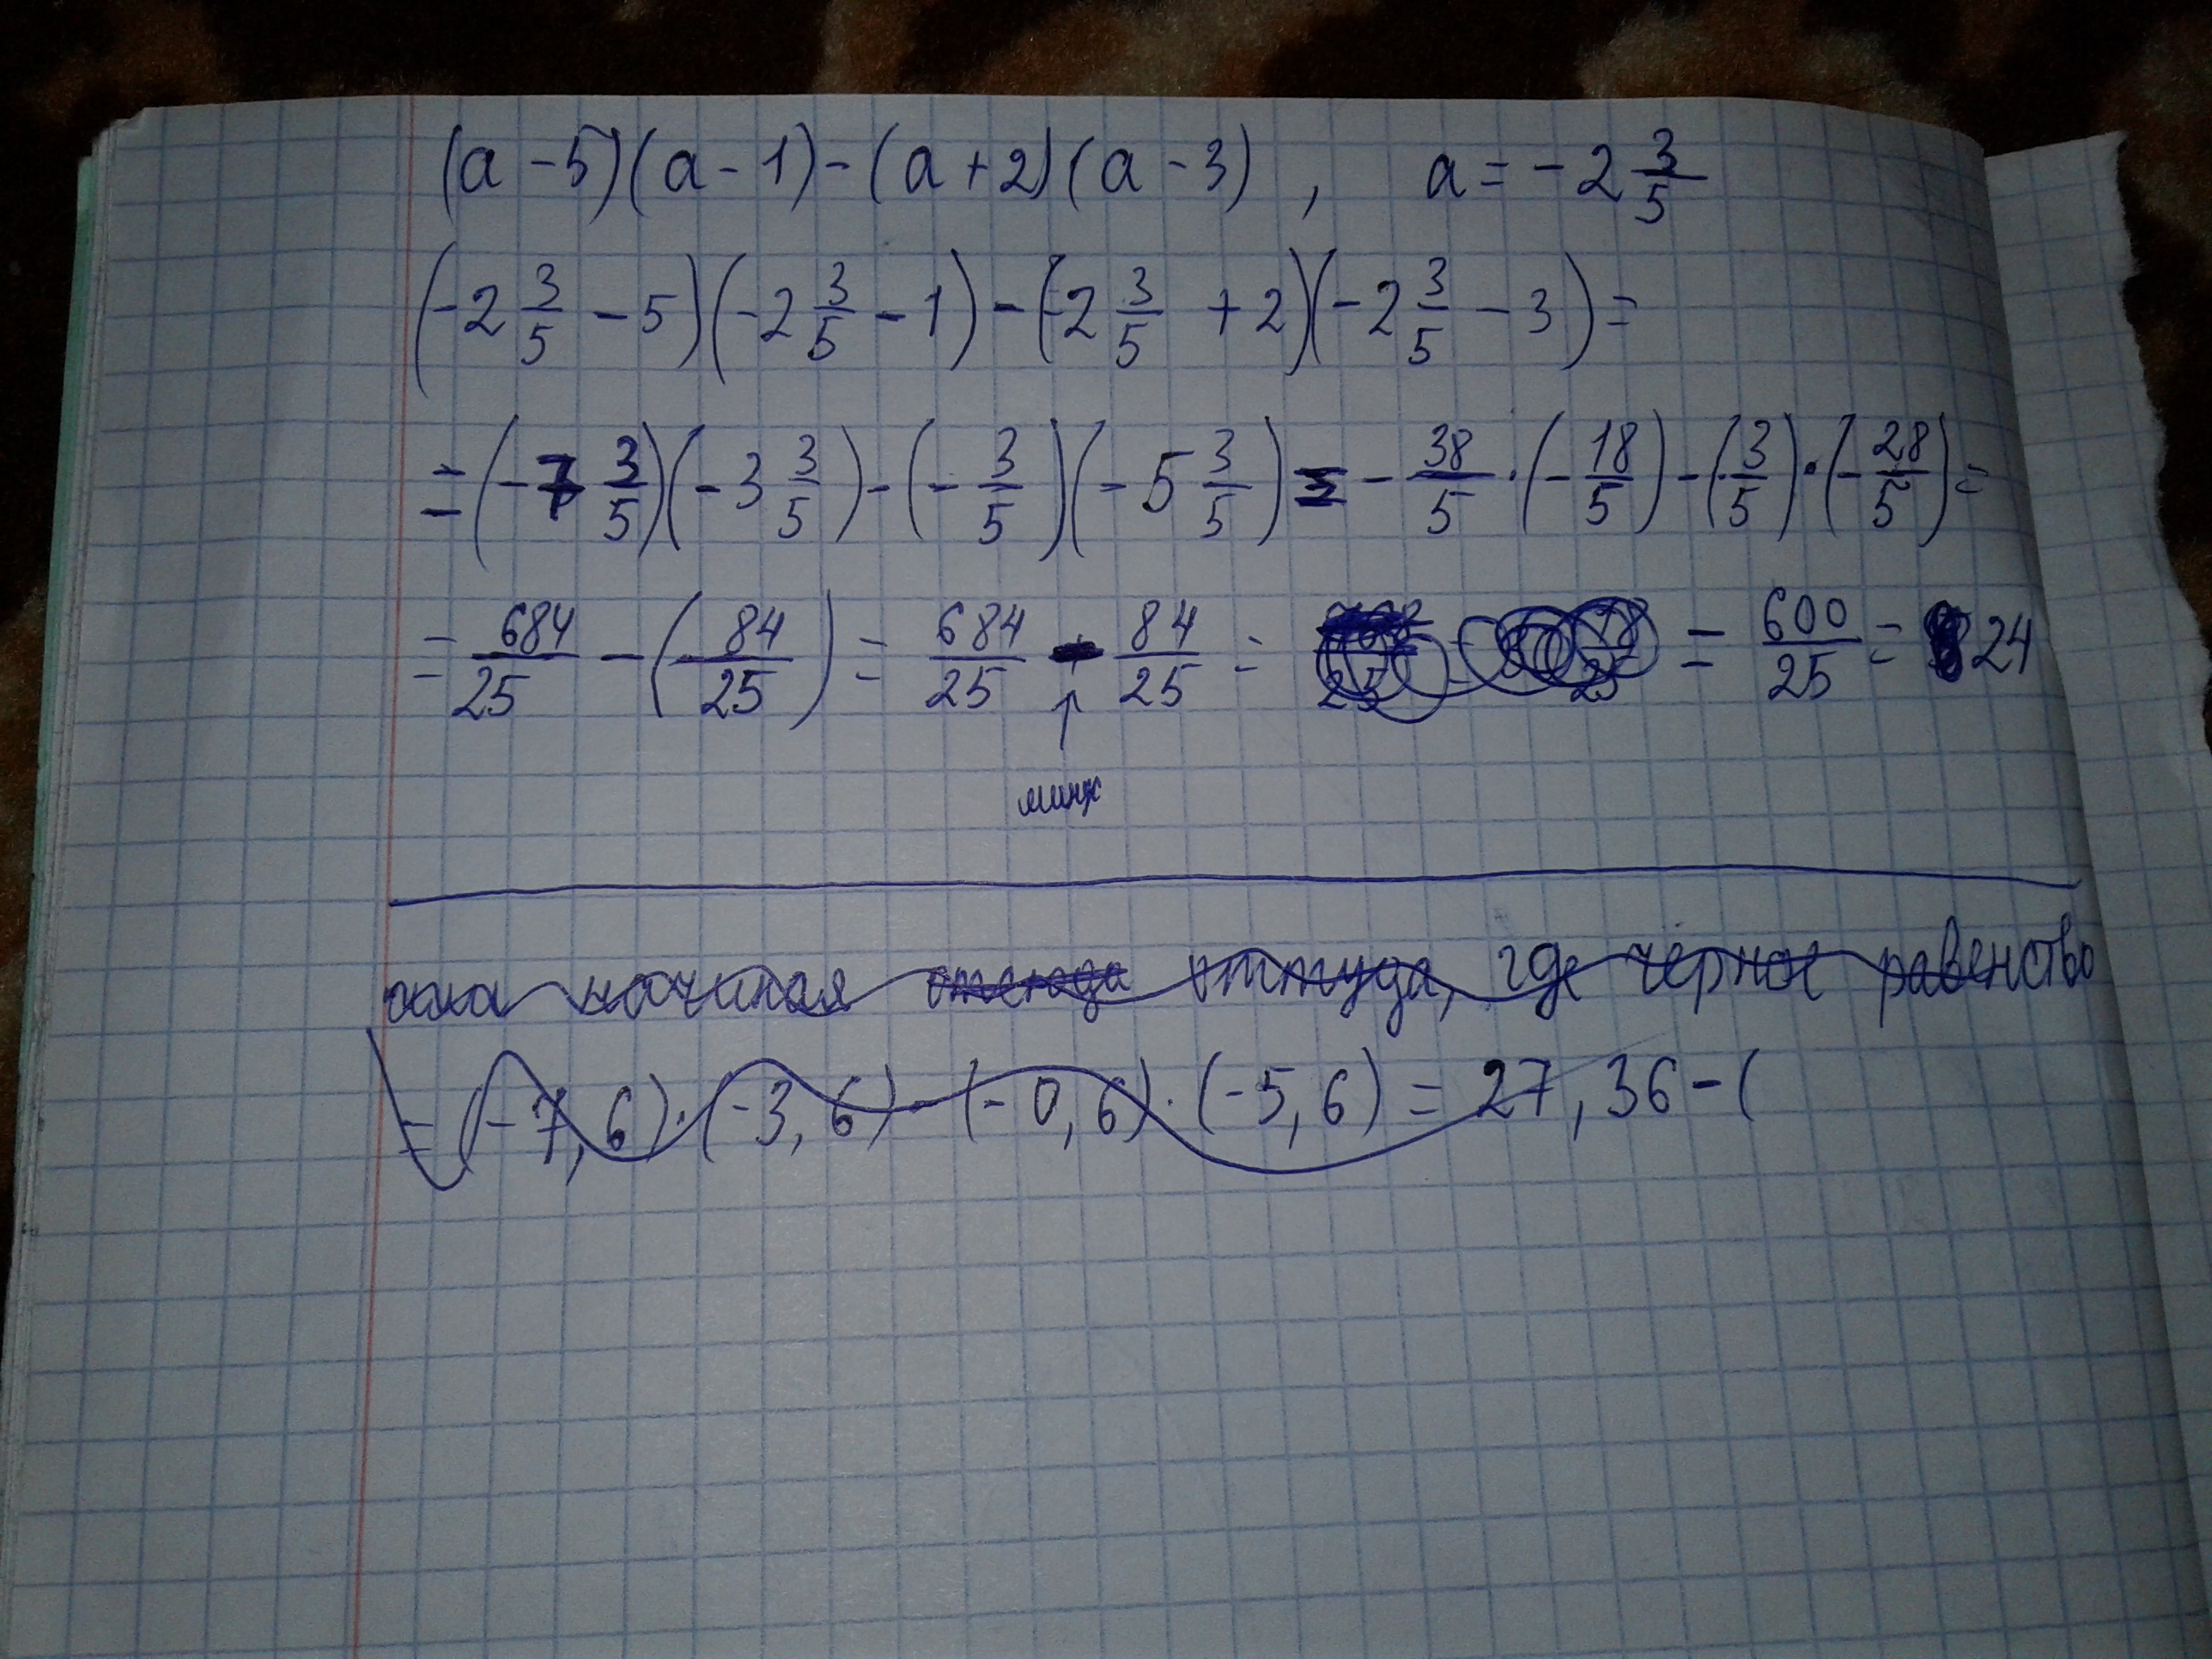 (a - 5)(a - 1) - (a + 2)(a - 3) , a = - 2 3/5
(-2 3/5 - 5)(-2 3/5 - 1) - (-2 3/5 + 2)(-2 3/5 - 3) =
= (-7 3/5)(-3 3/5) - (- 3/5)(-5 3/5) = - 38/5 · (- 18/5) - (3/5) · (- 28/5) =
= 684/25 - (- 84/25) = 684/25 - 84/25 = = 600/25 = 24
↑
минус
начиная оттуда, где чёрное равенство
= (-7,6) · (-3,6) - (-0,6) · (-5,6) = 27,36 - (